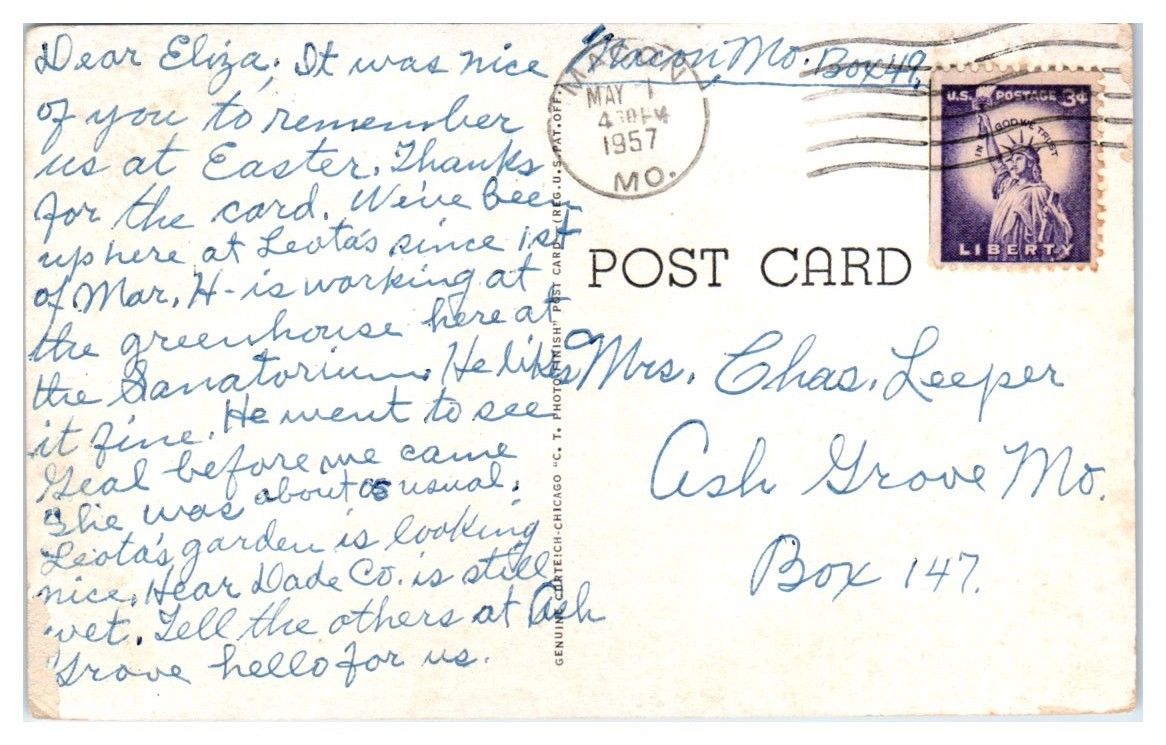 Dear Eliza. It was nice
of you to remember
us at Easter. Thanks
for the card. We've been
up here at Leota's since 1st
of Mar. H- is working at
the greenhouse here at
the Sanatorium. He likes
it fine. He went to see
Geal before we came
She was about as usual.
Leota's garden is looking
nice. Hear Dade Co. is still
wet. Tell the others at Ash
Grove hello for us.
GENUINE CURTEICH-CHICAGO "C. T. PHOTO-FINISH" POST CARD (REG. U.S. PAT. OFF.)
Macon, Mo. Box 49,
MACON
MAY 1
4 30 PM
1957
MO.
U.S. POSTAGE 3¢
IN GOD WE TRUST
LIBERTY
POST CARD
Mrs. Chas. Leeper
Ash Grove Mo.
Box 147.